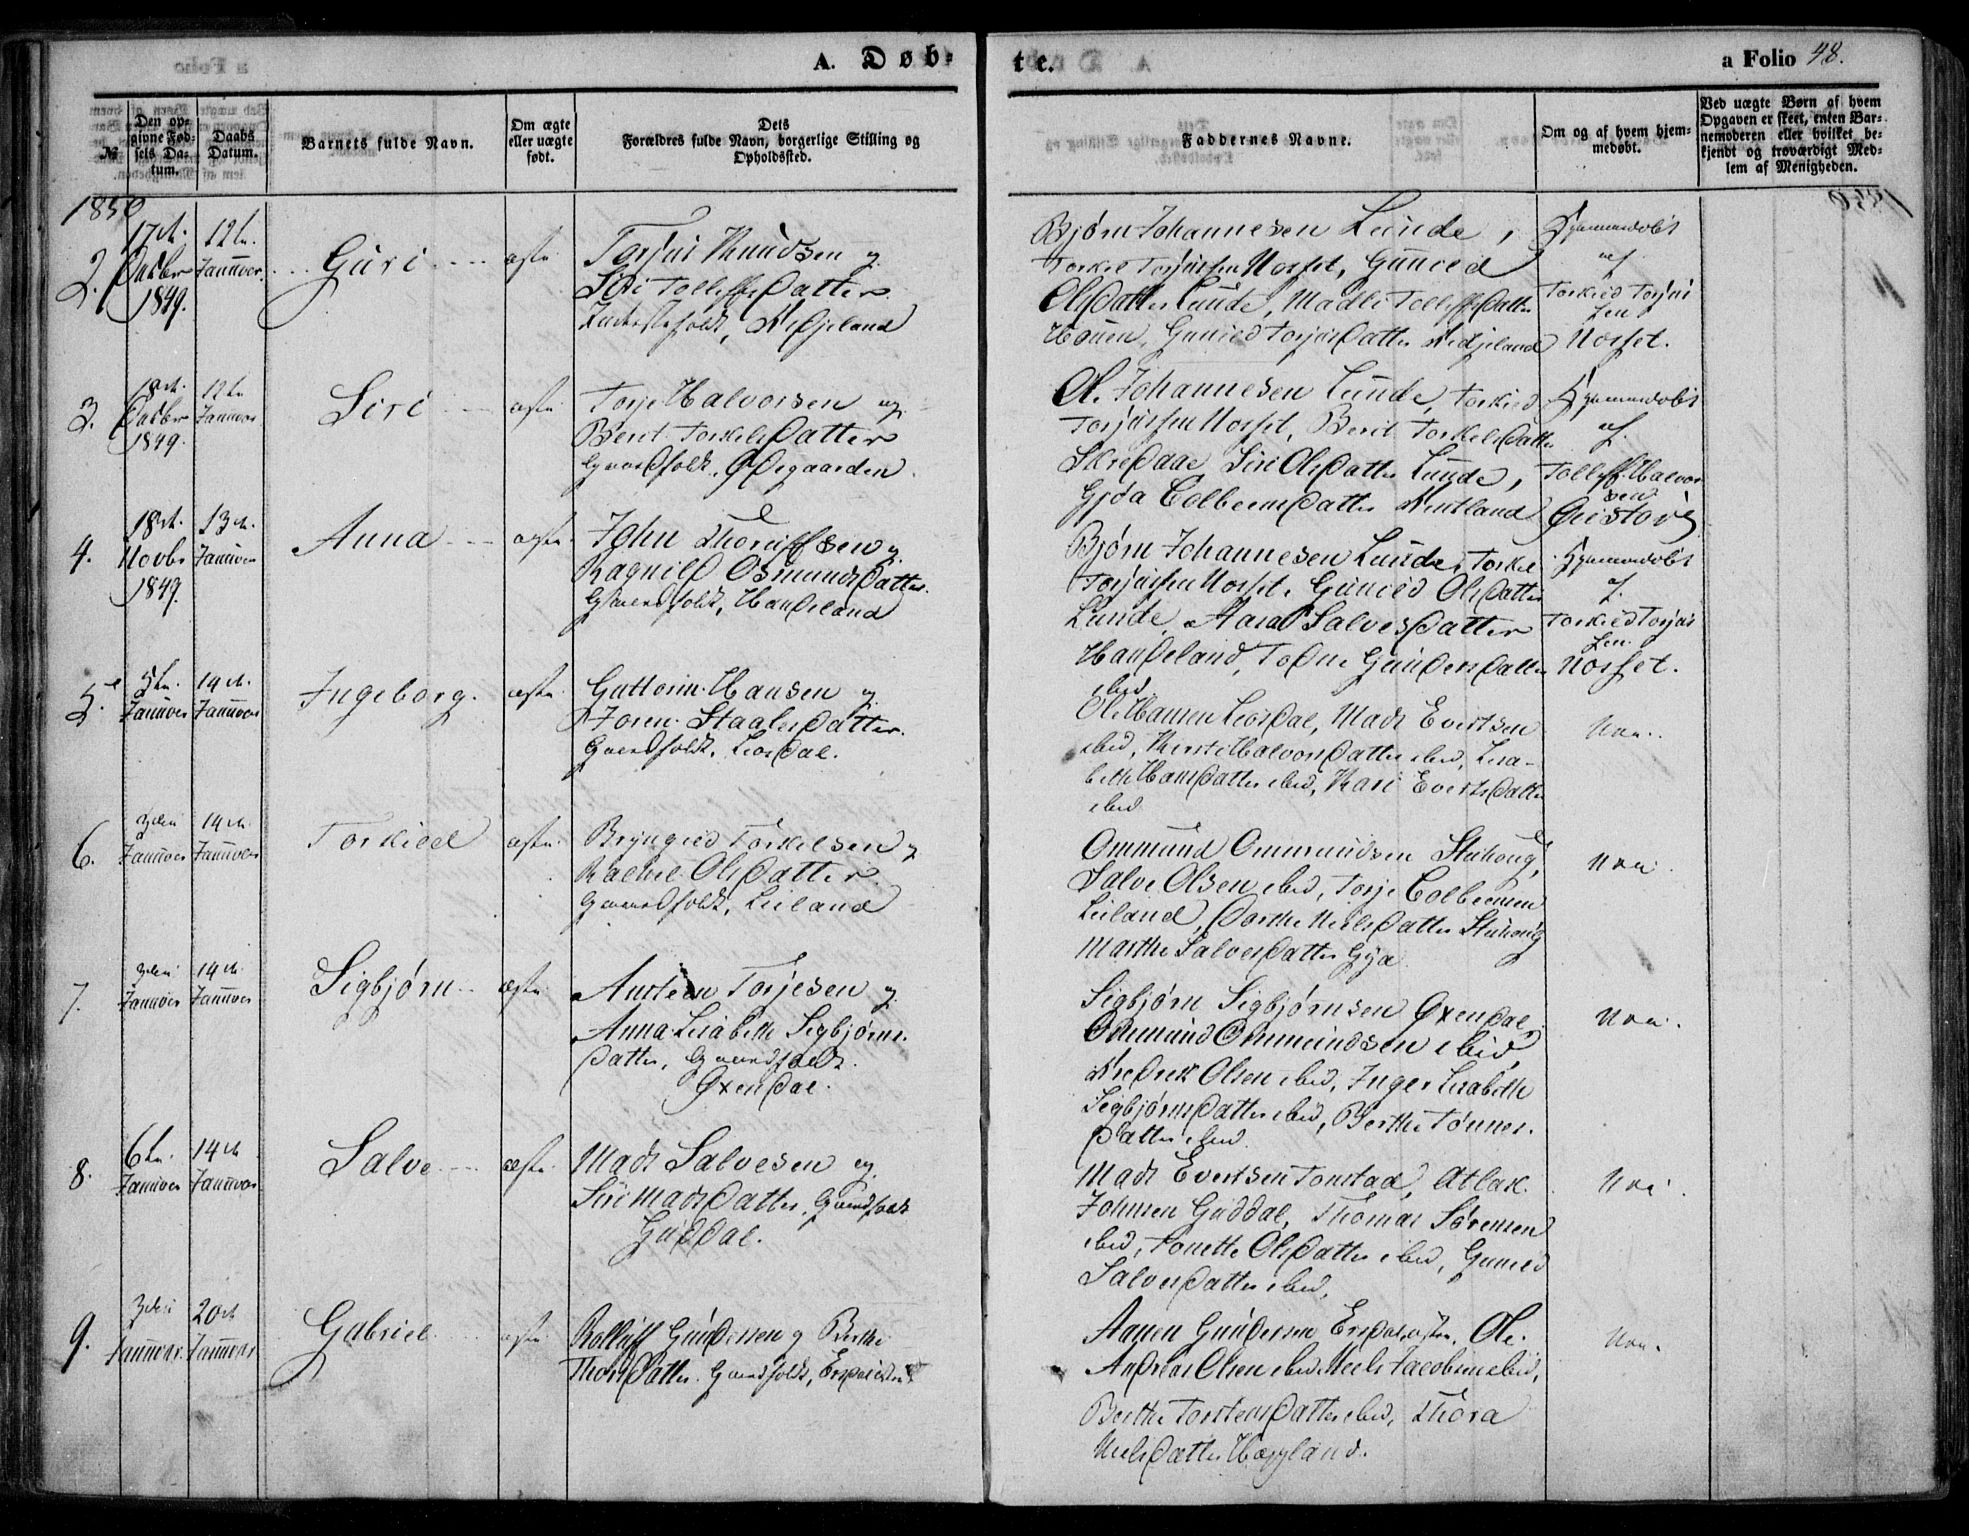 A. Døb-
te.
a Folio 48.
№
Den op-
givne Fød-
sels Da-
tum.
Daabs
Datum.
Barnets fulde Navn.
Om ægte
eller uægte
født.
Dets
Forældres fulde Navn, borgerlige Stilling og
Opholdssted.
Faddernes Navne.
Om og af hvem hjem-
medøbt.
Ved uægte Børn af hvem
Opgaven er skeet, enten Bar-
nemoderen eller hvilket be-
kjendt og troværdigt Med-
lem af Menigheden.
1850
2.
17de
Octbr
1849.
12te
Januver
Guri
ægte
Torjus Knudsen og
Siri Tollefsdatter
Kedjeland
Bjørn Johannesen Lunde,
Torkel Torjussen Nosset, Guneld
Olsdatter Lunde, Madli Tollefsdatter
Houen, Guneld Torjusdatter Kedjeland
Hjemmedøbt
af
Torkied Torjus
sen
Nosset.
3.
18de
Octbr
1849.
12te
Januver
Siri
ægte
Torje Halvorsen og
Berit Torkelsdatter
Gaardfolk. Ødegaarden
Ol. Johannesen Lunde, Torkied
Torjussen Nosset, Berit Torkelsdatter
Skredaae, Siri Olsdatter Lunde,
Gjøa Colbeensdatter
Hjemmedøbt
af
Tolleff Halvor
sen
4.
18de
Novbr
1849.
13de
Januver
Anna
ægte
John Thorleffsen og
Ragnild Osmundsdatter.
Gaardfolk, Handeland
Bjørn Johannesen Lunde, Torkel
Torjussen Nosset, Guneld Olsdatter
Lunde, Aasa Salvesdatter
Handeland, Todne Gundersdatter
ibid
Hjemmedøbt
af
Torkied Torjus
sen
Nosset.
5.
5te
Januver
14de
Januver
Ingeborg.
ægte
Guttorm Hansen og
Joren Staalesdatter.
Gaardfolk, Liosdal.
Ole Hansen Liosdal, Mads Evertsen
ibid, Kirsti Halvorsdatter ibid, Lisa-
beth Hansdatter ibid, Kari Evertsdatter
ibid
Nei.
6.
3den
Januver
14de
Januver
Torkied
ægte
Bryngied Torkelsen og
Rachel Olsdatter.
Gaardfolk, Liland
Ommund Ommundsen Stuhoug,
Salve Olsen ibid, Torje Colbeensen
Liland, Dorthe Nielsdatter Stuhoug
Marthe Salvesdatter Gya
Nei.
7.
3den
Januver
14de
Januver
Sigbjørn
ægte
Austeen Torjesen og
Anna Lisabeth Sigbjørns
datter, Gaardfolk.
Øxendal.
Sigbjørn Sigbjørnsen Øxendal,
Ommund Ommundsen ibid,
Fredrik Olsen ibid, Inger Lisabeth
Sigbjørnsdatter ibid, Berthe Tønnes
datter ibid
Nei.
8.
6te
Januver
14de
Januver
Salve
ægte
Mads Salvesen og
Siri Madsdatter. Gaardfolk
Guddal.
Mads Evertsen Tonstad, Atlak
Johnsen Guddal, Thomas Sørensen
ibid, Tonette Olsdatter ibid, Guneld
Salvesdatter ibid,
Nei.
9.
3den
Januver
20de
Januver
Gabriel
ægte
Rolleff Gundersen og Berthe
Thorsdatter. Gaardfolk,
Aanen Gundersen Ersdal, Ole
Andreas Olsen ibid, Niels Jacobsen ibid,
Berthe Torstensdatter ibid, Thora
Nielsdatter Haugland.
Nei.